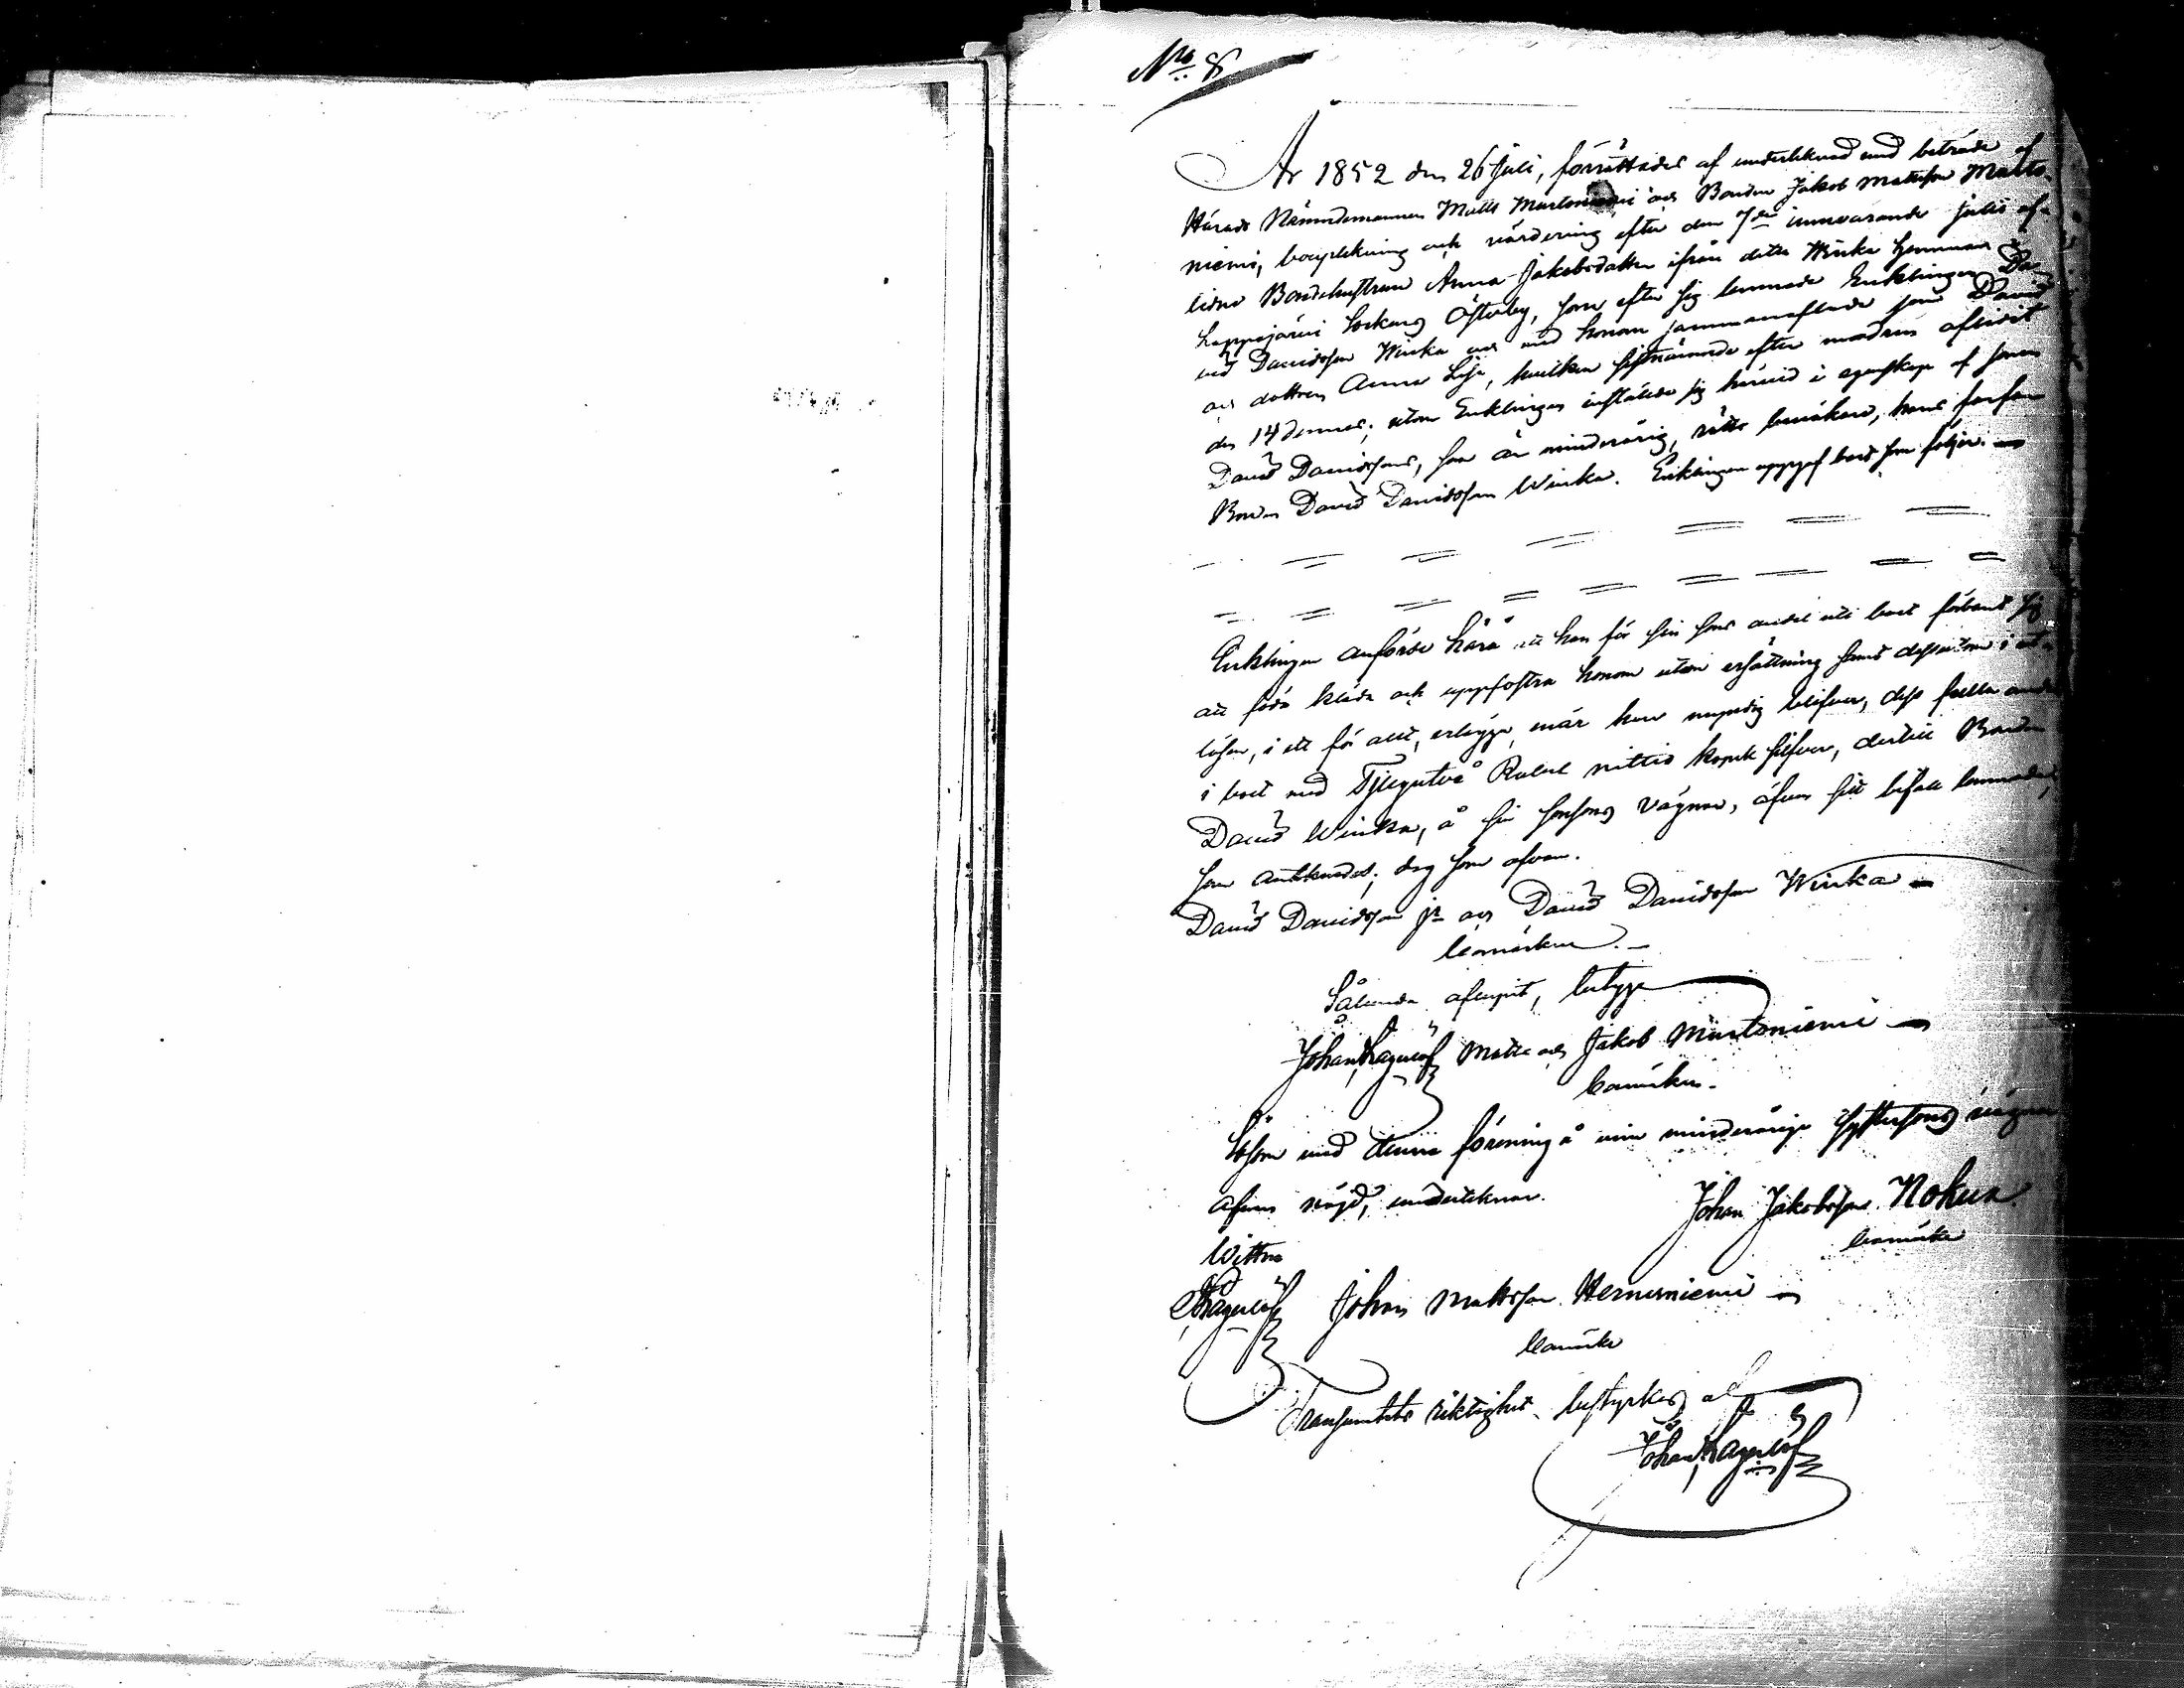 No 8
År 1852 den 26 Juli, förrättades af underteknad med beträde af
Härads Nämndemannen Matts Martoniemi och Bonden Jakob Mattsson Marto-
niemi, bouptekning och värdering efter den 7de innevarande Julii af-
lidne Bondehustrun Anna Jakobsdotter ifrån detta Winka hemman i
Lappajärvi Sockens Österby, som efter sig lemnade Enklingen Da-
vid Davidsson Winka och med honom sammanaflade son David
och dottren Anna Lisa, hvilken sistnämnde efter modren aflidit
den 14 dennes; utom Enklingen inställde sig härvid i egenskap af sonen
David Davidssons, som är minderårig, rätts bevakare, hans farfar
Bonden David Davidsson Winka. Enklingen uppgef boet som följer.
Enklingen anförde härå att han för sin sons andel uti boet förband sig
att föda kläda och uppfostra honom utan ersättning samt dessutom i ut-
lösen, i ett för allt, erlägga, när han myndig blifver, dess fulla andel
i boet med Tjugutvå Rubel nittio kopek silfver, dertill Bonden
David Winka, å sin sonsons vägnar, äfven sitt bifall lemnade,
som anteknades; dag som ofvan.
David Davidsson jr och David Davidsson Winka
bomärken.
Sålunda afslutit, betyga
Johan Lagerlöf Matts och Jakob Martoniemi
bomärken.
Såsom med denna förening å min minderåriga systersons vägnar
äfven nöjd, undertecknar. Johan Jakobsson Nokua
bomärke
Wittna
Lagerlöf Johan Mattsson Hernesniemi
bomärke
Transumtets riktighet bestyrkes af
Johan Lagerlöf